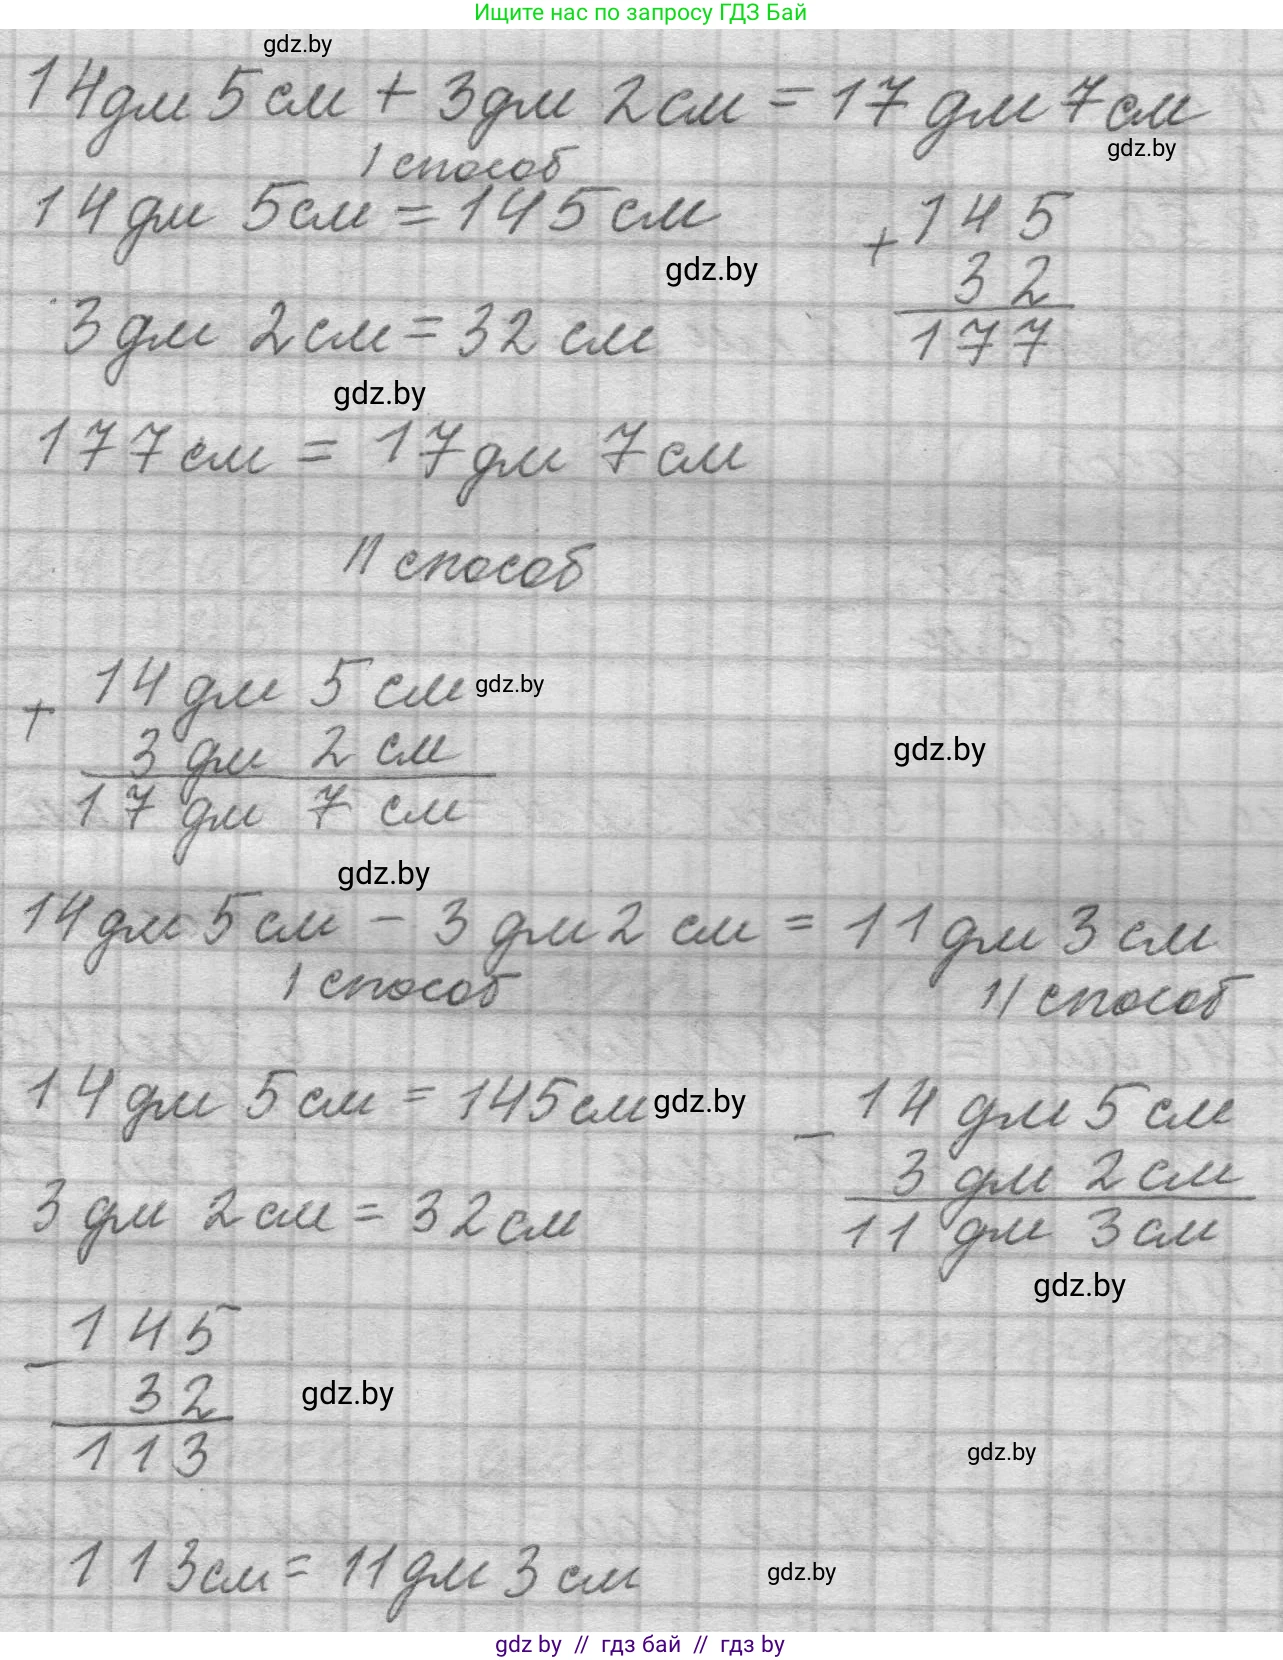 Ищите нас по запросу ГДЗ Бай
gdz.by
14дм 5см + 3дм 2см = 17дм 7см
gdz.by
1 способ
14дм 5см = 145см
+ 145
32
177
gdz.by
3дм 2см = 32 см
gdz.by
177см = 17дм 7см
11 способ
+ 14дм 5см
gdz.by
3 дм 2 см
17 дм 7 см
gdz.by
gdz.by
14дм 5см - 3 дм 2 см = 11дм 3 см
1 способ
11 способ
14дм 5см = 145см
gdz.by
- 14 дм 5см
3 дм 2см
11 дм 3см
3 дм 2см = 32см
gdz.by
- 145
32
113
gdz.by
gdz.by
113см = 11дм 3 см
gdz.by
gdz by // гдз бай // гдз by